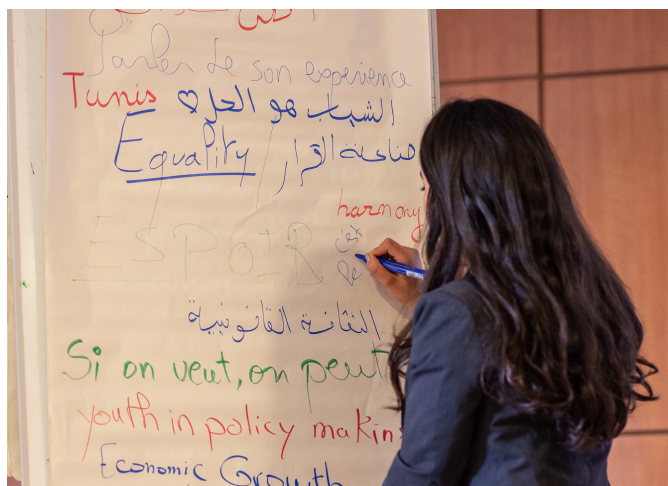 Parler de son experience
Tunis ♡ الشباب هو الحل
Equality / صناعة القرار
harmony
ESPOIR
الثقافة القانونية
Si on veut, on peut
youth in policy making
Economic Growth